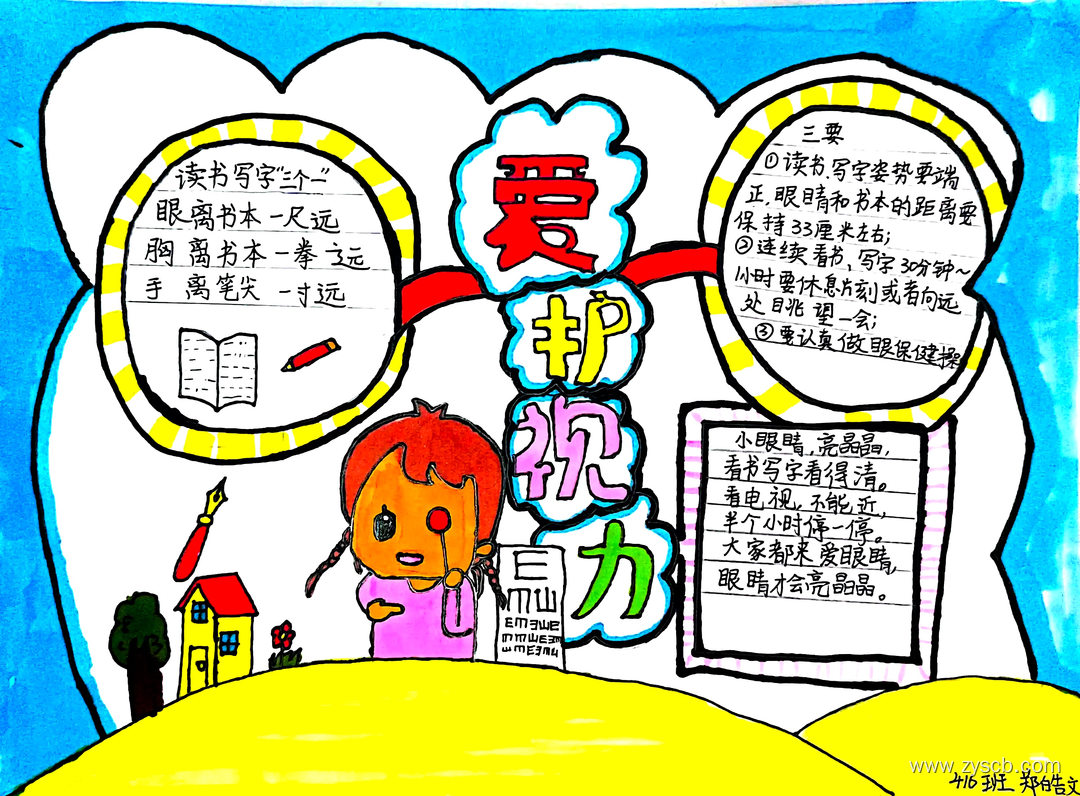 爱护视力
读书写字"三个一"
眼离书本一尺远
胸离书本一拳远
手离笔尖一寸远
三要
①读书、写字姿势要端
正,眼睛和书本的距离要
保持33厘米左右;
②连续看书、写字30分钟~
1小时要休息片刻或者向远
处眺望一会;
③要认真做眼保健操
小眼睛,亮晶晶,
看书写字看得清。
看电视,不能近,
半个小时停一停。
大家都来爱眼睛,
眼睛才会亮晶晶。
E
ШШ
EmƎШE
www.zyscb.com
416班 郑皓文